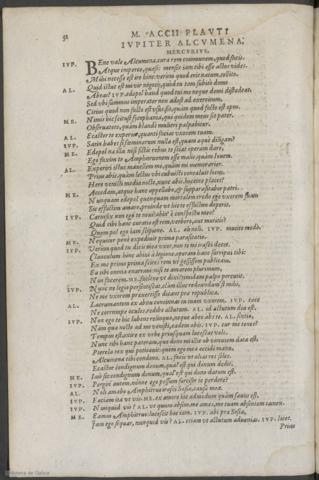 52
M. ACCII PLAVTI
IVPITER ALCVMENA,
MERCVRIVS.
IVP. BEne vale Alcumena, cura rem communem, quod facis.
Atque imperce, quæso: menses iam tibi esse actos vides.
Mihi necesse est ire hinc: verùm quod erit natum, tollito.
AL. Quid istuc est mi vir negoti, quòd tu tam subito domo
Abeas? IVP. edepol haud quòd tui me neque domi distædeat.
Sed vbi summus imperator non adest ad exercitum,
Citius quod non facto est vsus fit, quàm quod facto est opus.
ME. Nimis hic scitust sycophanta, qui quidem meus sit pater.
Observatote, quàm blande mulieri palpabitur.
AL. Ecastor te experior, quanti facias vxorem tuam.
IVP. Satin habes si fœminarum nulla est, quam æque diligam?
ME. Edepol næ illa si istis rebus te sciat operam dare,
Ego faxim te Amphitruonem esse malis quam Iovem.
AL. Experiri istuc mavellem me, quàm mi memorarier.
Prius abis, quàm lectus vbi cubuisti concaluit locus.
Here venisti media nocte, nunc abis, hoccine placet?
ME. Accedam, atque hanc appellabo, & supparasitabor patri.
Nunquam edepol quenquam mortalem credo ego vxorem suam
Sic efflictim amare, proinde vt hic te efflictim deperit.
IVP. Carnufex non ego te novi? abin' è conspectu meo?
Quid tibi hanc curatio est rem, verbero, aut mutitio?
Quem pol ego iam scipione. AL. ah noli. IVP. mutito modo.
ME. Nequiter penè expedivit prima parasitatio.
IVP. Verùm quod tu dicis mea vxor, non te mi irasci decet.
Clanculum hinc abivi à legione, operam hanc surripui tibi:
Ex me primo prima scires rem vt gessissem publicam.
Ea tibi omnia enarravi: nisi te amarem plurimum,
Non facerem. ME. facitne vt dixi? timidam palpo percutit.
IVP. Nunc ne legio persentiscat, clam illuc redeundum est mihi,
Ne me vxorem prævertisse dicant præ republica.
AL. Lacrumantem ex abitu concinnas tu tuam vxorem. IVP. tace
Ne corrumpe oculos, redibo actutum. AL. id actutum diu est.
IVP. Non ego te hic lubens relinquo, neque abeo abs te. AL. sentio,
Nam qua nocte ad me venisti, eadem abis. IVP. cur me tenes?
Tempus est, exire ex vrbe priusquam lucescat volo.
Nunc tibi hanc pateram, quæ dono mi illic ob virtutem data est,
Pterela rex qui potitavit, quem ego mea occidi manu,
Alcumena tibi condono. AL. facis vt alias res soles.
Ecastor condignum donum, quale est qui donum dedit.
ME. Imò sic: condignum donum, quale est cui dono datum est.
IVP. Pergin' autem, nonne ego possum furcifer te perdere?
AL. Noli amabo Amphitruo irasci Sosiæ, causa mea.
IVP. Faciam ita vt vis. ME. ex amore hic admodum quàm sævus est.
IVP. Nunquid vis? AL. vt quum absim, me ames, me tuam absentem tamen.
ME. Eamus Amphitruo: lucescit hoc iam. IVP. abi præ Sosia,
Iam ego sequar, nunquid vis? AL. etiam vt actutum advenias. IVP. licet.
Prius